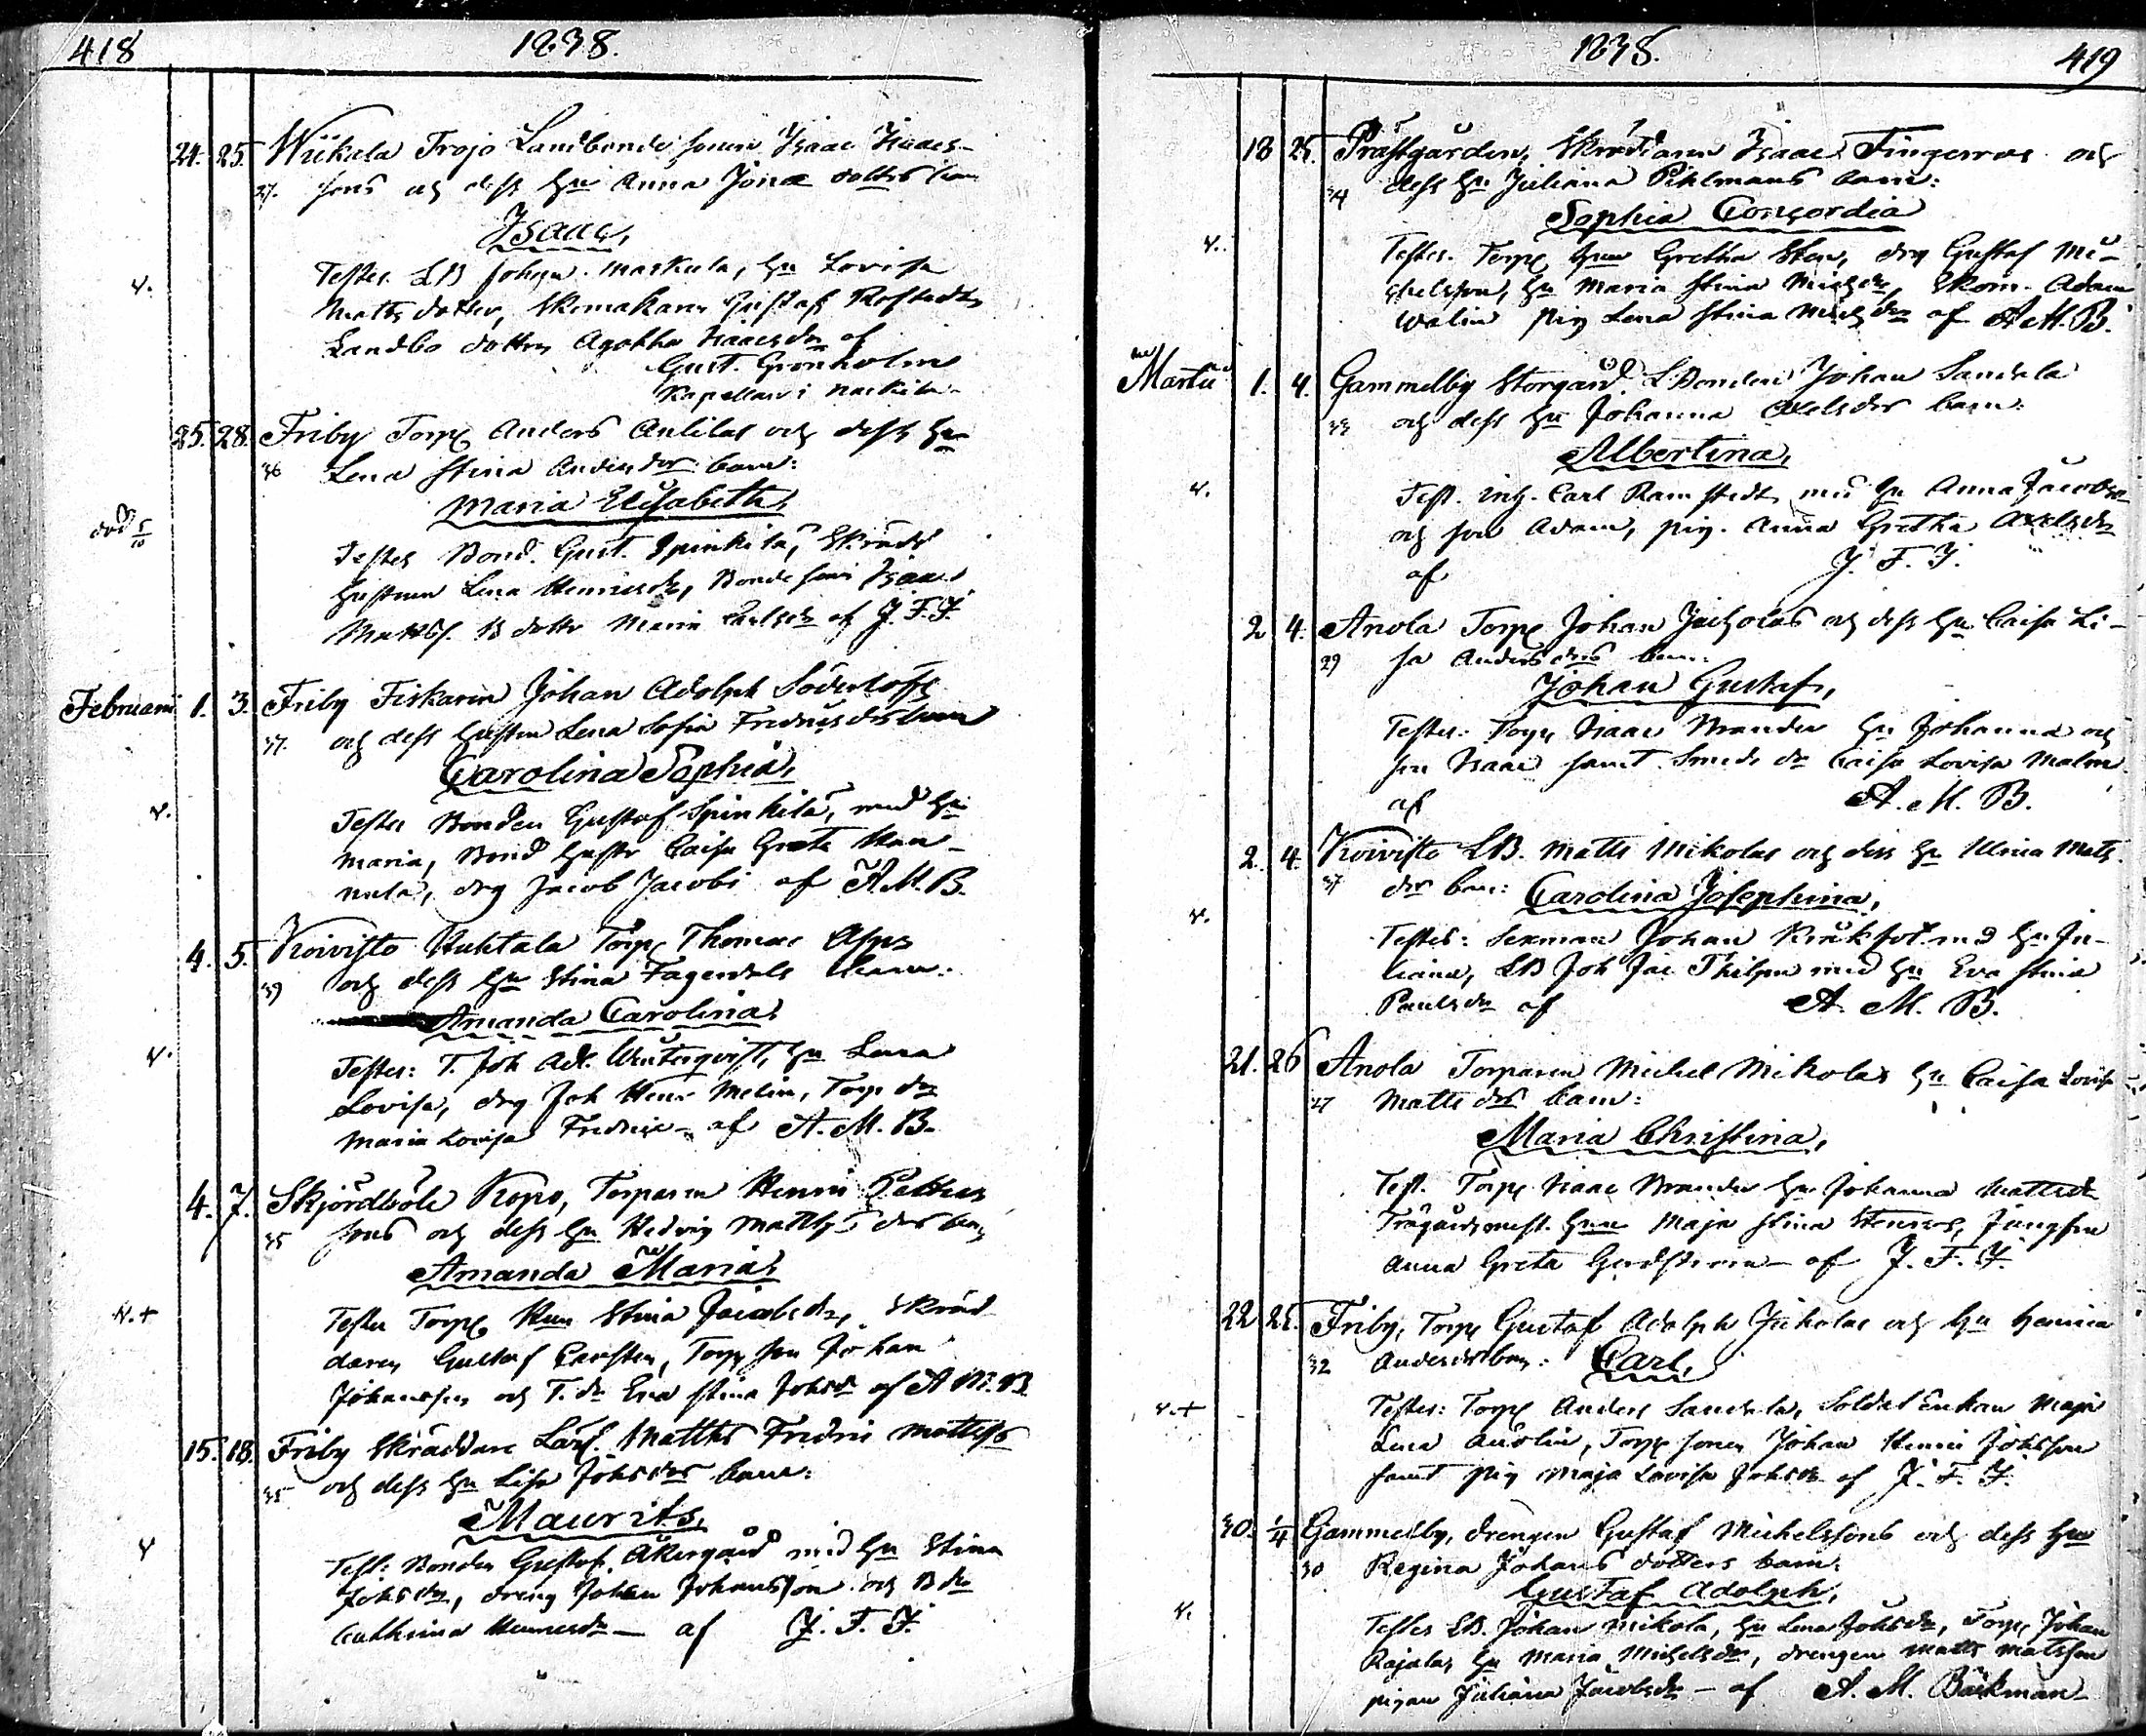 418 1838.
24. 25. Wiikula Trojo Landbonde sonen Isaac Isaacs-
37. sons och dess Hu Anna Jonæ dotters barn
Isaac,
v. Testes LB Johan Markula, Hu Lovisa
Matts dotter, Skomakaren Gustaf Rostedt
Landbo dottren Agatha Isaacsdr af
Gust. Grönholm
Kapellan i
25. 28. Friby Torp Anders Anlilas och dess Hu
36 Lena Stina Andersdrs barn:
Maria Elisabeth,
död 5/10 Testes Bond. Gust. Spinkila, Skrädd
Hustrun Lena Henricsdr, Bonde son Isaac
Mattss. B dottr Maria Carlsdr af J. F. F.
Februarii 1. 3. Friby Fiskaren Johan Adolph Söderlöfs
37. och dess Hustru Lena Sofia Fredricsdrs barn
Carolina Sophia,
v. Testes Bonden Gustaf Spinkila, med Hu
Maria, Bond Hustr Caisa Greta Han-
nula, drg Jacob Jacobs af A. M. B.
4. 5. Koivisto Huhtala Torp Thomas Asps
39 och dess Hu Stina Fagerdals barn:
Amanda Carolina,
v. Testes: T. Joh Ad. Winterqvist, Hu Lena
Lovisa, drg Joh Henr Melin, Torp dr
Maria Lovisa Fredrics- af A. M. B.
4. 7. Skjördböle Kopo, Torparen Henric Petters
35 sons och dess Hu Hedvig Mattsdrs barn
Amanda Maria,
v.+ Testes Torp Hun Stina Jacobsdr, Skräd-
daren Gustaf Carsten, Torp son Johan
Johansson och T. dr Eva Stina Johsdr af A M. B
15. 18. Friby Skräddare Lärl. Matths Fredric Mattsss
35 och dess Hu Lisa Johsdrs barn:
Maurits,
v Test: Bonden Gustaf Åkergård med Hu Stina
Johsdr, dreng Johan Johansson och B dr
Cathrina Henricsdr — af J. F. F.
1838. 419
18 25. Prästgården, Skräddaren Isaac Fingerroos och
34 dess Hu Juliana Pihlmans barn:
Sophia Concordia
v. Testes. Torp Hun Gretha Sten, drg Gustaf Mi-
chelsson, Hu Maria Stina Michsdr, Skom. Adam
Walin pig Lena Stina Michsdr af A. M. B.
Martii 1. 4. Gammelby Storgård L. Bonden Johan Sandela
33 och dess Hu Johanna Axelsdrs barn:
Albertina,
v. Test. inh. Carl Ramstedt med Hu Anna Jacobsdr
och son Adam, pig. Anna Gretha Axelsdr
af J. F. F.
2 4. Anola Torp Johan Jacholas och dess Hu Caisa Li-
29 sa Andersdrs barn:
Johan Gustaf,
Testes: Torp Isaac Brander Hu Johanna och
son Isaac samt Smeds dr Caisa Lovisa Malm
af A. M. B.
2. 4. Koivisto LB. Matts Mikolas och dess Hu Ulrica Matts-
37 drs barn: Carolina Josephina,
v. Testes: Sexman Johan Kråkfot med Hu Ju-
liana, LB Joh Jac Thilpu med Hu Eva Stina
Paulsdr af A. M. B.
21. 26 Anola Torparen Michel Mikolas Hu Caisa Lovisa
27 Mattsdrs barn:
Maria Christina,
Test. Torp Isaac Brander Hu Johanna Mattsdr
Trägårdsmest. Hun Maja Stina Stenroos, Jungfru
Anna Greta — af J. F. F.
22 25. Friby, Torp Gustaf Adolph Jakolas och Hu Henrica
32 Andersdrs barn: Carl,
v.+ Testes: Torp Anders Sandela, Soldat Enkan Maja
Lena Austin, Torp sonen Johan Henric Johsson
samt pig Maja Lovisa Johsdr af J. F. F.
30. 1/4 Gammelby, drengen Gustaf Michelssons och dess Hu
30 Regina Johans dotters barn:
Gustaf Adolph,
v. Testes LB. Johan Mikola, Hu Lena Johsdr, Torp Johan
Rajala, Hu Maria Michelsdr, drengen Matts Matsson
pigan Juliana Jacobsdr — af A. M. Bäckman